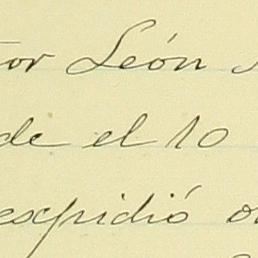 or León
de el 10
expidió